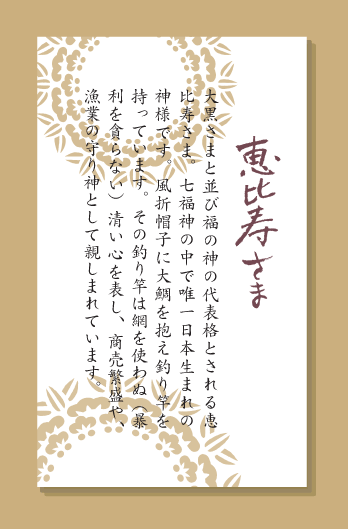 恵比寿さま
大黒さまと並び福の神の代表格とされる恵
比寿さま。七福神の中で唯一日本生まれの
神様です。風折帽子に大鯛を抱え釣り竿を
持っています。その釣り竿は網を使わぬ（暴
利を貪らない）清い心を表し、商売繁盛や、
漁業の守り神として親しまれています。